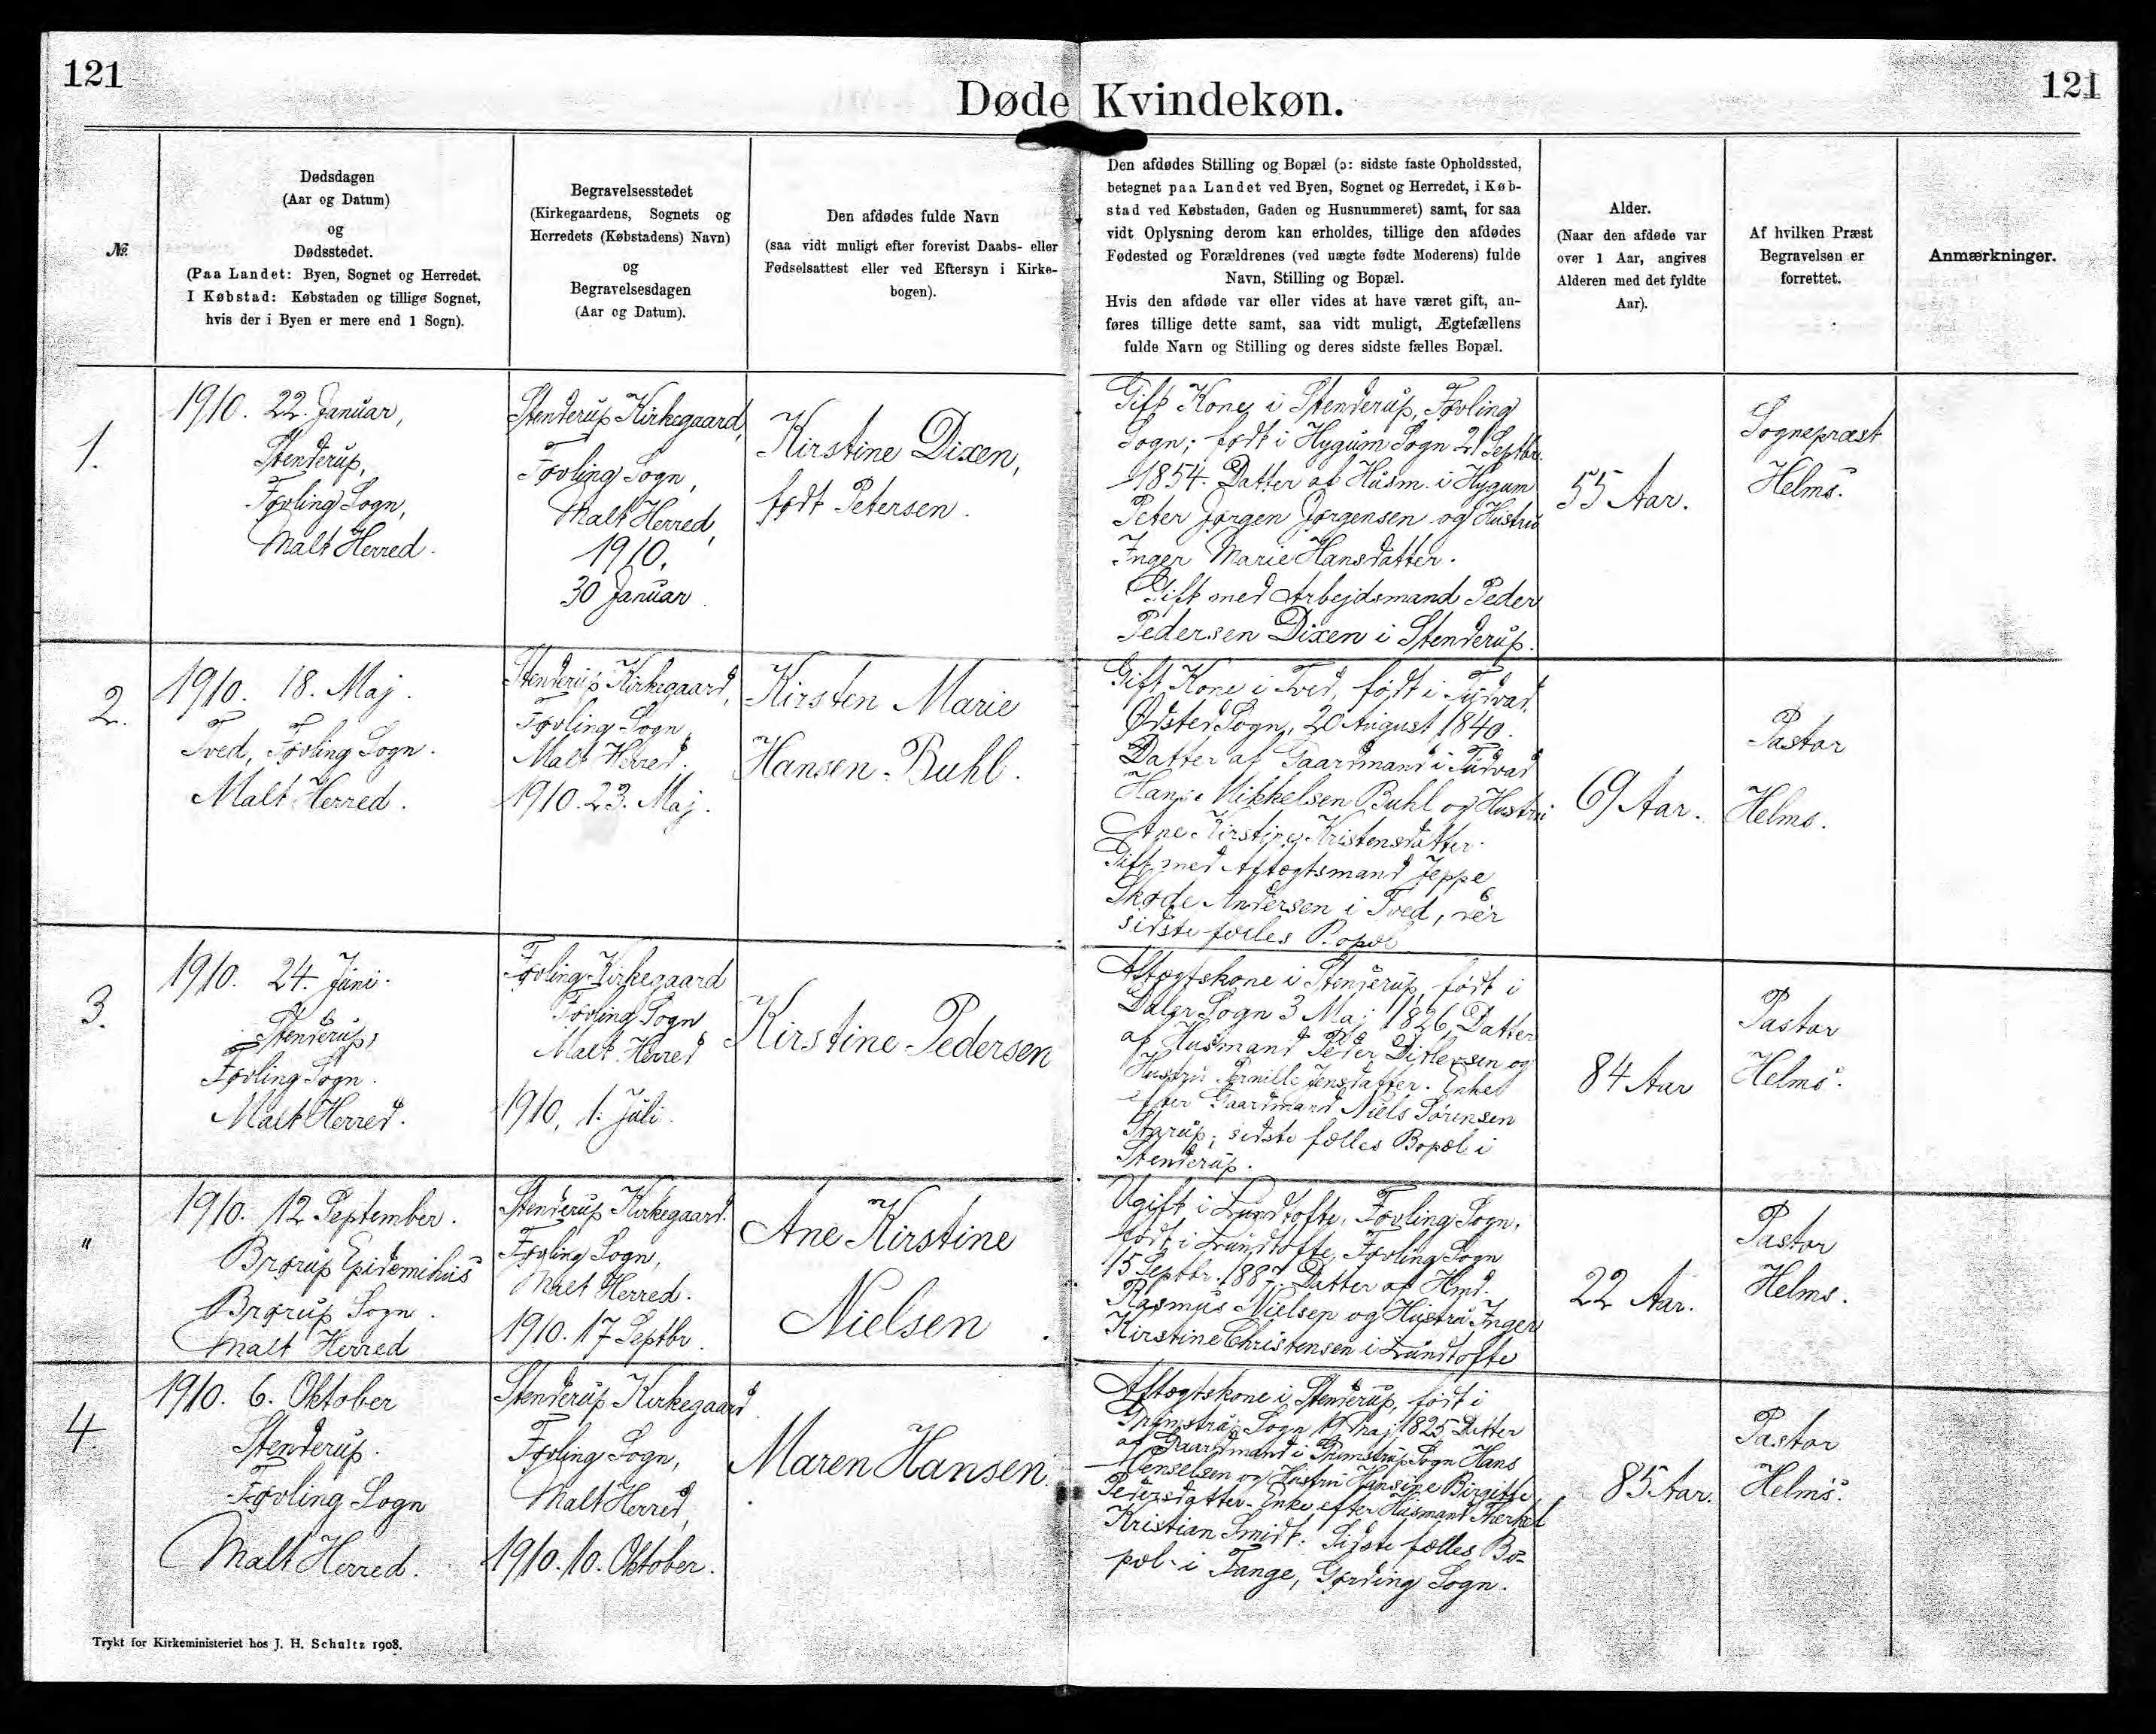 121
121
Døde Kvindekøn.
№
Dødsdagen
(Aar og Datum)
og
Dødsstedet.
(Paa Landet: Byen, Sognet og Herredet.
I Købstad: Købstaden og tillige Sognet,
hvis der i Byen er mere end 1 Sogn).
Begravelsesstedet
(Kirkegaardens, Sognets og
Herredets (Købstadens) Navn)
og
Begravelsesdagen
(Aar og Datum).
Den afdødes fulde Navn
(saa vidt muligt efter forevist Daabs- eller
Fødselsattest eller ved Eftersyn i Kirke-
bogen).
Den afdødes Stilling og Bopæl (ɔ: sidste faste Opholdssted,
betegnet paa Landet ved Byen, Sognet og Herredet, i Køb-
stad ved Købstaden, Gaden og Husnummeret) samt, for saa
vidt Oplysning derom kan erholdes, tillige den afdødes
Fødested og Forældrenes (ved uægte fødte Moderens) fulde
Navn, Stilling og Bopæl.
Hvis den afdøde var eller vides at have været gift, an-
føres tillige dette samt, saa vidt muligt, Ægtefællens
fulde Navn og Stilling og deres sidste fælles Bopæl.
Alder.
(Naar den afdøde var
over 1 Aar, angives
Alderen med det fyldte
Aar).
Af hvilken Præst
Begravelsen er
forrettet.
Anmærkninger.
1.
1910. 22. Januar,
Stenderup,
Føvling Sogn,
Malt Herred.
Stenderup Kirkegaard,
Føvling Sogn,
Malt Herred,
1910.
30 Januar.
Kirstine Dixen,
født Petersen.
Gift Kone i Stenderup, Føvling
Sogn; født i Hygum Sogn 21 Septbr.
1854. Datter af Husm. i Hygum
Peter Jørgen Jørgensen og Hustru
Inger Marie Hansdatter.
Gift med Arbejdsmand Peder
Pedersen Dixen i Stenderup.
55 Aar.
Sognepræst
Helms.
2.
1910. 18. Maj.
Tved, Føvling Sogn.
Malt Herred.
Stenderup Kirkegaard,
Føvling Sogn,
Malt Herred.
1910. 23. Maj.
Kirsten Marie
Hansen Buhl.
Gift Kone i Tved, født i
Ødsted Sogn, 20 August 1840.
Datter af Gaardmand i
Hans Mikkelsen Buhl og Hustru
Ane Kirstine Kristensdatter.
Gift med Aftægtsmand Jeppe
Skøde Andersen i Tved, der
sidste fælles Bopæl
69 Aar.
Pastor
Helms.
3.
1910. 24. Juni.
Stenderup,
Føvling Sogn.
Malt Herred.
Føvling Kirkegaard
Føvling Sogn,
Malt Herred
1910, 1. Juli.
Kirstine Pedersen
Aftægtskone i Stenderup, født i
Daler Sogn 3 Maj 1826, Datter
af Husmand Peder Ditlevsen og
Hustru Pernille Jensdatter. Enke
efter Gaardmand Niels Sørensen
Starup; sidste fælles Bopæl i
Stenderup.
84 Aar
Pastor
Helms.
"
1910. 12 September.
Brørup Epidemihus
Brørup Sogn.
Malt Herred
Stenderup Kirkegaard.
Føvling Sogn,
Malt Herred.
1910. 17 Septbr.
Ane Kirstine
Nielsen.
Ugift i Lundtofte, Føvling Sogn,
født i Lundtofte, Føvling Sogn
15 Septbr. 1887. Datter af Hmd.
Rasmus Nielsen og Hustru Inger
Kirstine Christensen i Lundtofte
22 Aar.
Pastor
Helms.
4.
1910. 6. Oktober
Stenderup.
Føvling Sogn
Malt Herred.
Stenderup Kirkegaard.
Føvling Sogn,
Malt Herred,
1910. 10. Oktober.
Maren Hansen.
Aftægtskone i Stenderup, født i
Grimstrup Sogn Maj 1825 Datter
af Gaardmand i Grimstrup Sogn Hans
og Hustru Hansine Birgitte
Pedersdatter. Enke efter Husmand Therkel
Kristian Smidt. Sidste fælles Bo-
pæl i Tange, Gørding Sogn.
85 Aar.
Pastor
Helms.
Trykt for Kirkeministeriet hos J. H. Schultz 1908.